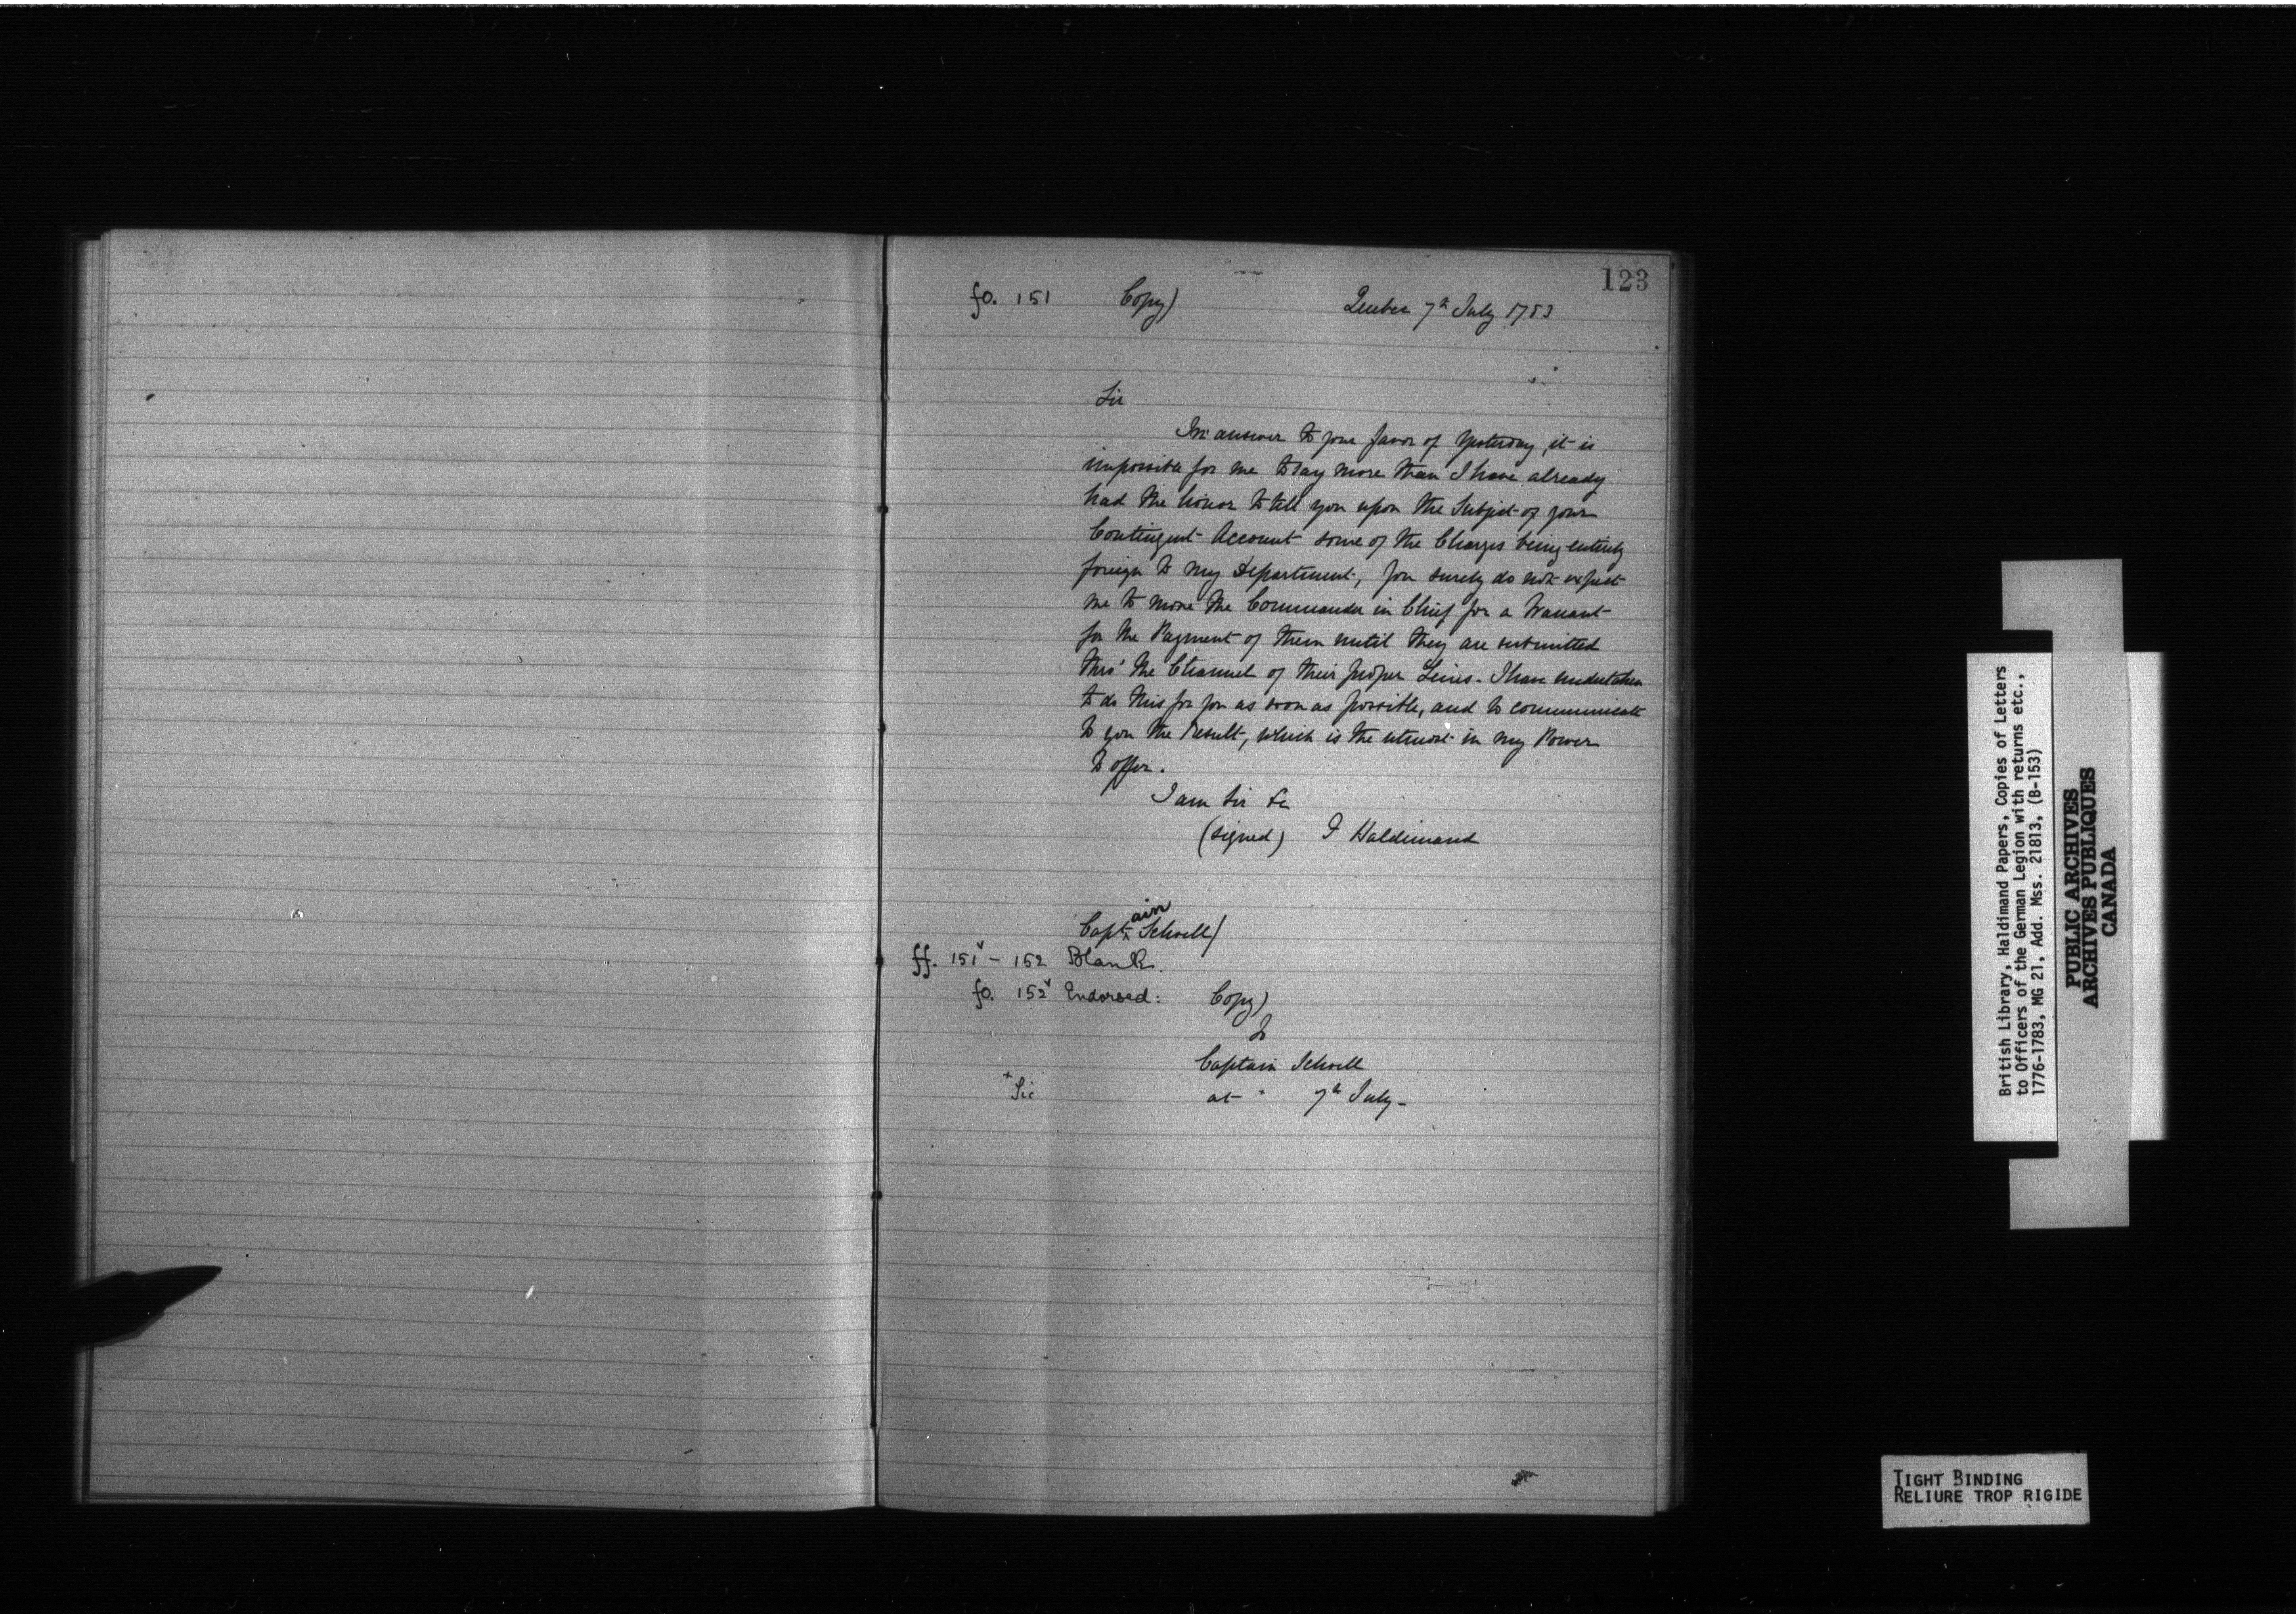 123
fo. 151 Copy) Quebec 7th July 1783
Sir
In answer to your favor of Yesterday, it is
impossible for me to say more than I have already
had the honor to tell you upon the Subject of your
Contingent Account some of the Charges being entirely
foreign to my Department, you surely do not expect
me to move the Commander in Chief for a Warrant
for the Payment of them until they are submitted
thro' the Channel of their proper Lines. I have undertaken
to do this for you as soon as possible, and to communicate
to you the result, which is the utmost in my Power
to offer.
I am Sir &c
(signed) F Haldimand
Captain Schoell)
ff. 151v - 152 Blank.
fo. 152v Endorsed: Copy)
To
Captain Schoell
x Sic at x 7th July -
British Library, Haldimand Papers, Copies of Letters
to Officers of the German Legion with returns etc.,
1776-1783, MG 21, Add. Mss. 21813, (B-153)
PUBLIC ARCHIVES
ARCHIVES PUBLIQUES
CANADA
TIGHT BINDING
RELIURE TROP RIGIDE